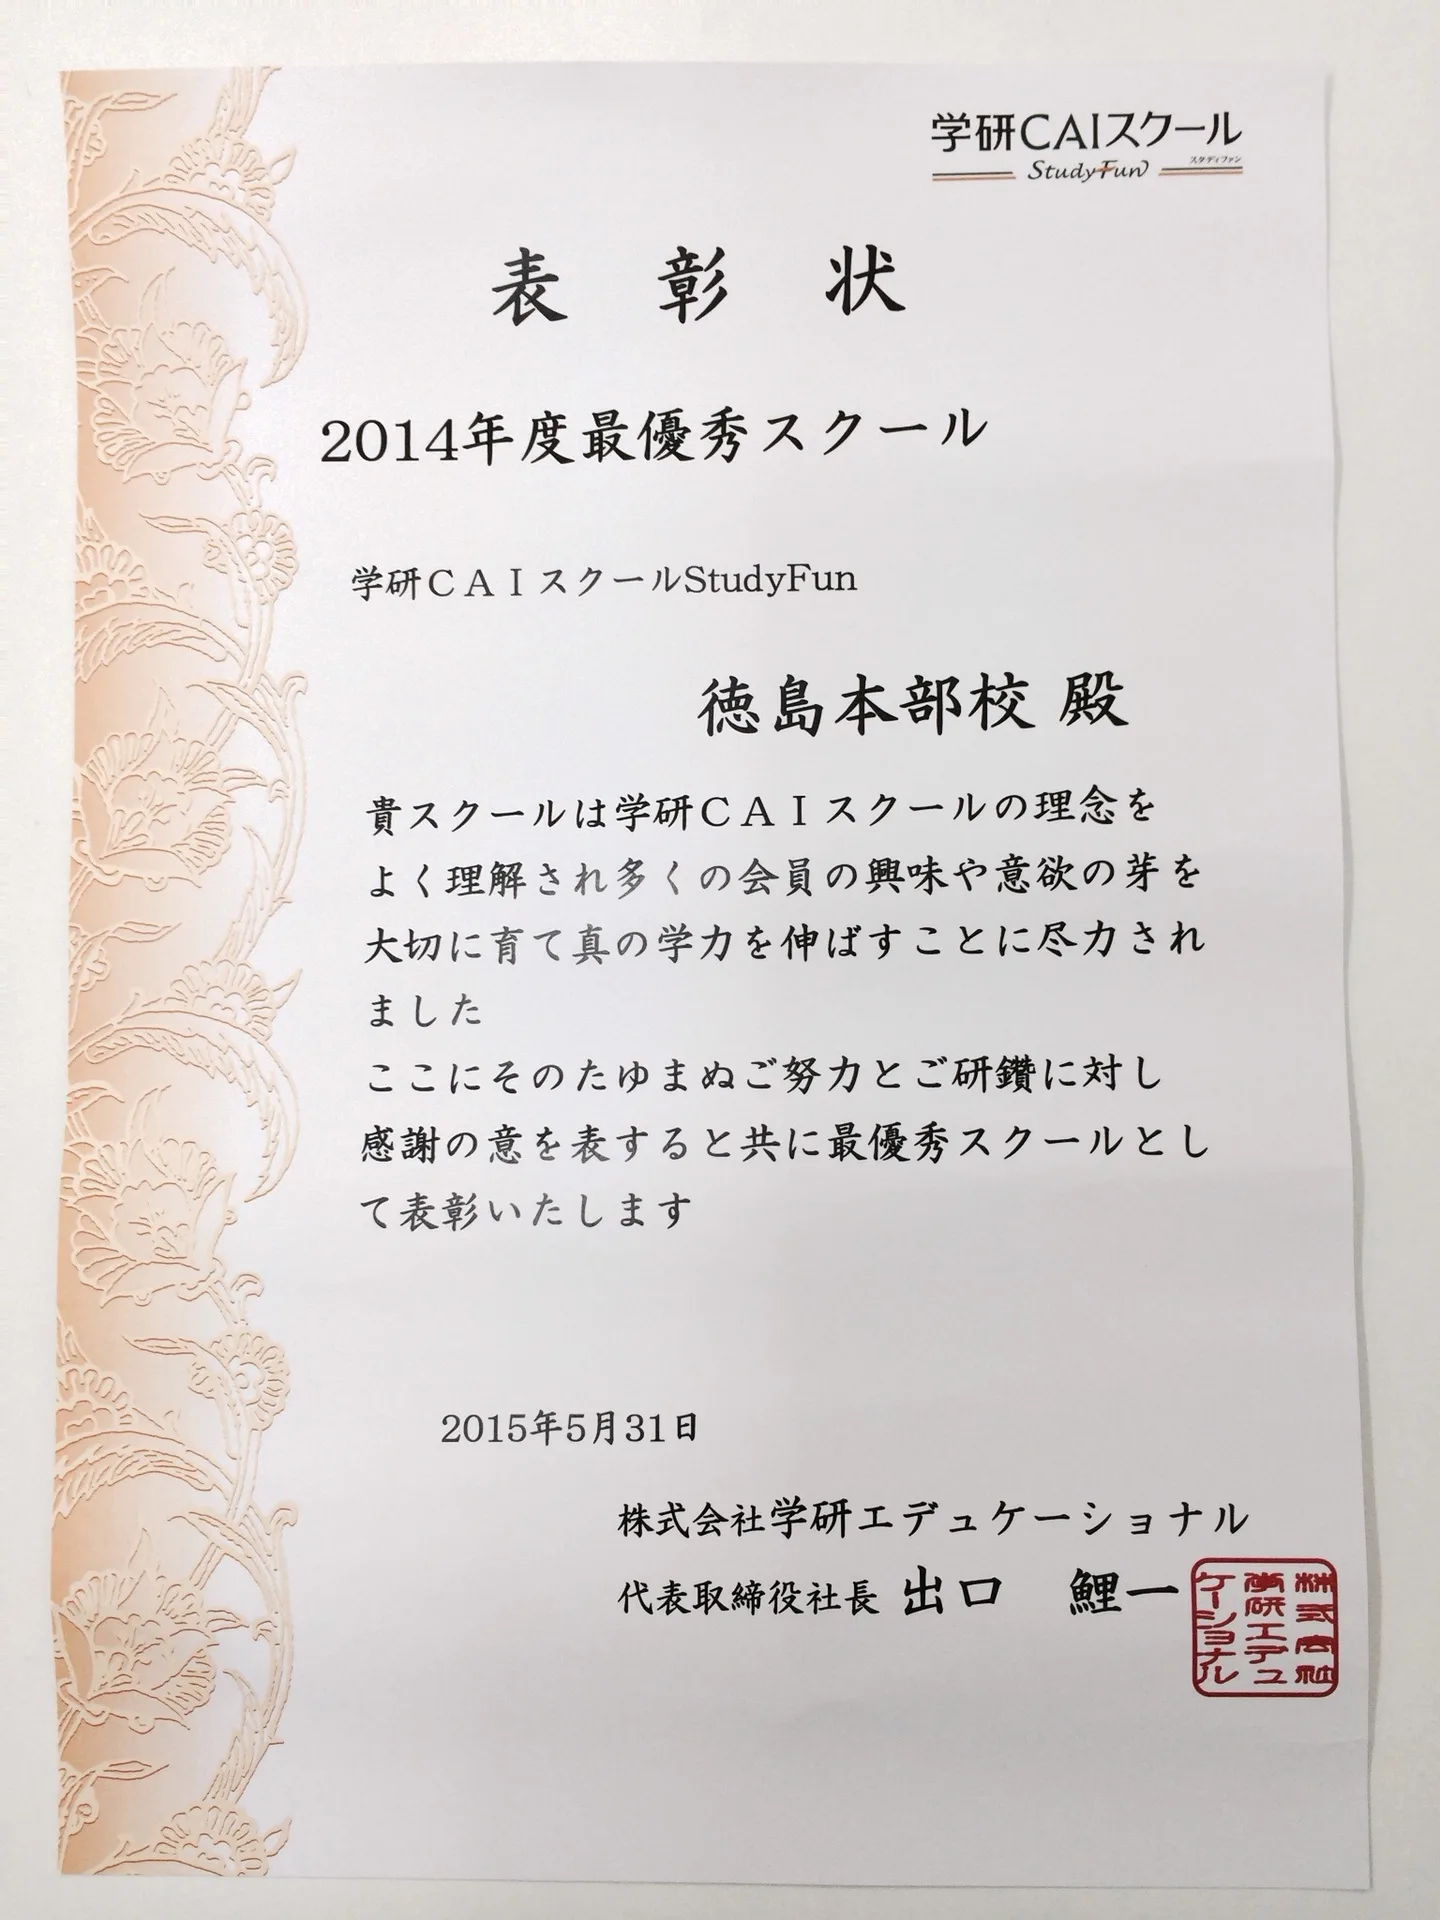 学研CAIスクール
スタディファン
StudyFun
表 彰 状
2014年度最優秀スクール
学研ＣＡＩスクールStudyFun
徳島本部校 殿
貴スクールは学研ＣＡＩスクールの理念を
よく理解され多くの会員の興味や意欲の芽を
大切に育て真の学力を伸ばすことに尽力され
ました
ここにそのたゆまぬご努力とご研鑽に対し
感謝の意を表すると共に最優秀スクールとし
て表彰いたします
2015年5月31日
株式会社学研エデュケーショナル
代表取締役社長 出口　鯉一
株式会社
学研エデュ
ケーショナル